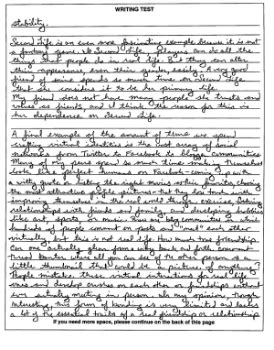 WRITING TEST
stability.
Second Life is an even more fascinating example because it is not
a fantasy game. In Second Life, players can do all the
things that people do in real life. But they can alter
their appearance, even their gender, easily. A very good
friend of mine spends so much time on Second Life
that she considers it to be her primary life.
My friend does not have many people she trusts and
values as friends and I think the reason for this is
her dependence on Second Life.
A final example of the amount of time we spend
creating virtual identities is the vast array of social
networks from Twitter to Facebook to blogging communities.
Many of my peers spend so much time making themselves
look like perfect humans on Facebook - coming up with
a witty quote or listing the right movies or
the most attractive profile pictures - that they lose touch with
improving themselves in the real world through exercise, taking
relationships with friends and family, and developing hobbies
like art, sports, or music. Even on blog communities where
hundreds of people comment on posts and "meet" each other
virtually, but this is not real life. How much true friendship
can one actually glean from witty back and forth comment
threads when all you can see of the other person is a
little thumbnail that could be a picture of anything?
People mistake these virtual interactions for real life
and develop crushes on each other or friendships without
ever actually meeting in person. In my opinion, though
interesting, this form of bonding is very limited and lacks
a lot of the essential traits of a real friendship or relationship
If you need more space, please continue on the back of this page